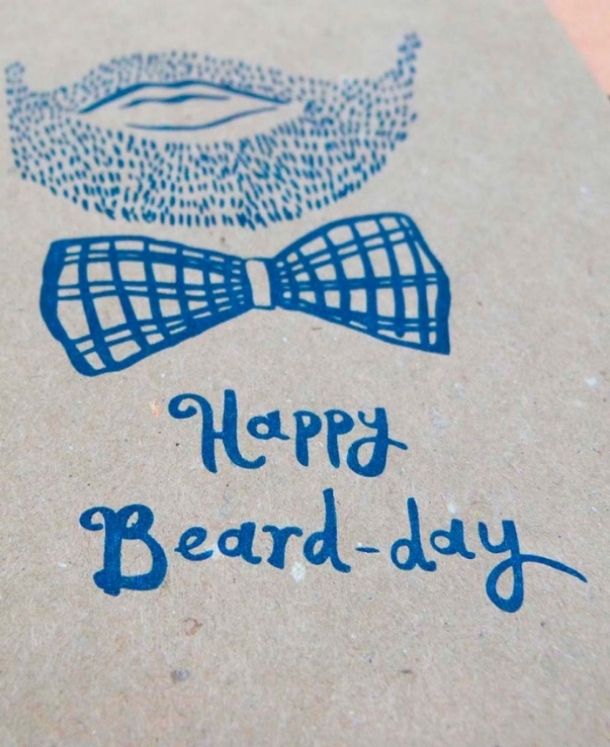 Happy
Beard-day